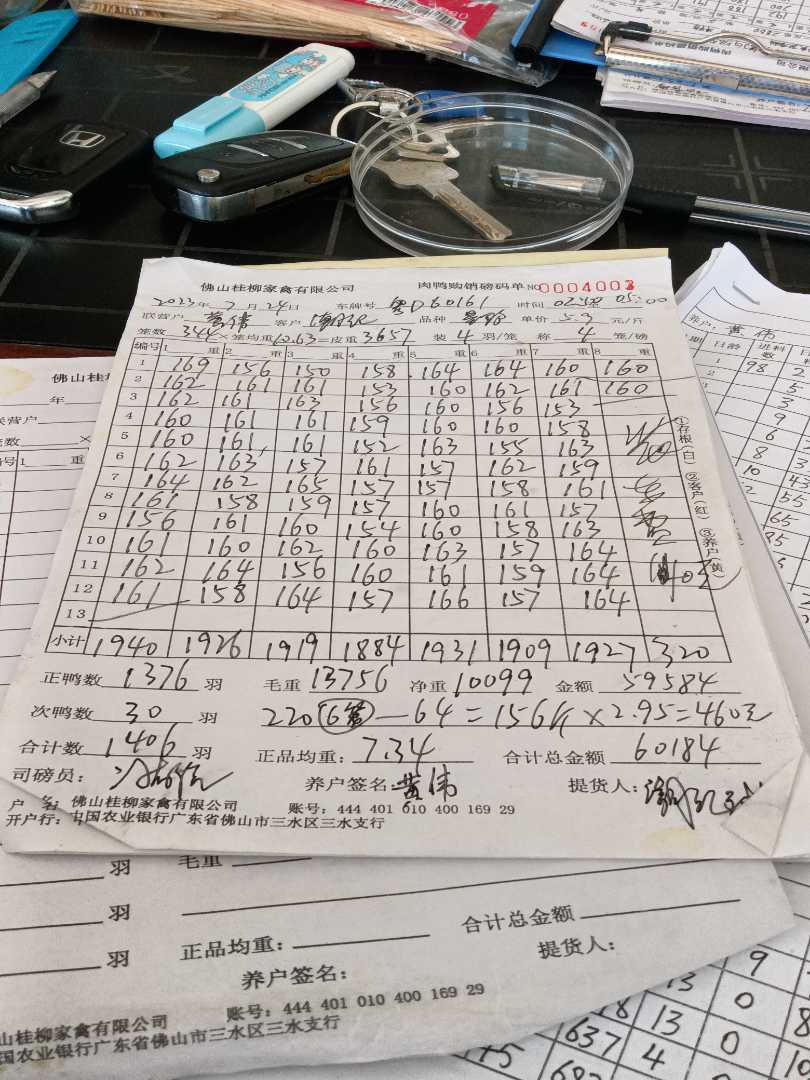 佛山桂柳家禽有限公司 肉鸭购销磅码单 NO 0004003
2023年 7月 24日 车牌号 粤D60161 时间 05:00
联营户 黄伟 客户 品种 单价 5.9 元/斤
笼数 344 × 笼均重 10.63 = 皮重 3657 装 4 羽/笼 称 4 笼/磅
编号 1 重 2 重 3 重 4 重 5 重 6 重 7 重 8 重
1 169 156 150 158 164 164 160 160
2 162 161 161 153 160 162 161 160
3 162 161 163 156 160 156 153
4 160 161 161 159 160 160 158
5 160 161 161 152 163 155 163
6 162 163 157 161 157 162 159
7 164 162 165 157 157 158 161
8 161 158 159 157 160 161 157
9 156 161 160 154 160 158 163
10 161 160 162 160 163 157 164
11 162 164 156 160 161 159 164
12 161 158 164 157 166 157 164
13
小计 1940 1926 1919 1884 1931 1909 1927 320
①存根(白) ②客户(红) ③养户(黄)
正鸭数 1376 羽 毛重 13756 净重 10099 金额 59584
次鸭数 30 羽 220 (6笼) — 64 = 156斤 × 2.95 = 460元
合计数 1406 羽 正品均重: 7.34 合计总金额 60184
司磅员: 养户签名: 黄伟 提货人:
户 名: 佛山桂柳家禽有限公司 账号: 444 401 010 400 169 29
开户行: 中国农业银行广东省佛山市三水区三水支行
佛山桂柳家禽
年
联营户
笼数 ×
编号 1 重
羽 毛重
羽 合计总金额
羽 正品均重: 提货人:
养户签名:
山桂柳家禽有限公司 账号: 444 401 010 400 169 29
国农业银行广东省佛山市三水区三水支行
养户: 黄伟
日龄 进料数
1 98